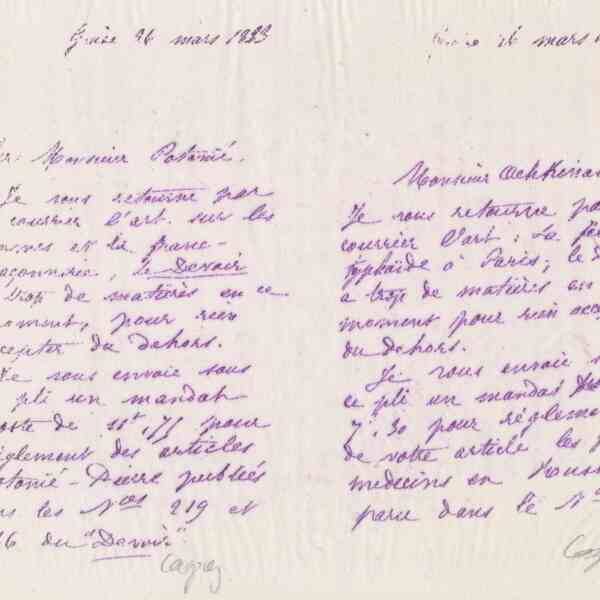 Guise 26 mars 1883
Monsieur Potonié.
Je vous retourne par
courrier l'art. sur les
et la franc-
açonnerie, le Devoir
trop de matières en ce
oment, pour rien
cepter du dehors.
Je vous envoie sous
pli un mandat
oste de 11f,75 pour
èglement des articles
otonié-Pierre publiés
s les Nos 219 et
6 du "Devoir".
mars 1
Monsieur
Je vous retourne pa
courrier l'art: La
typhoïde à Paris; le
a trop de matières en
moment pour rien acc
du dehors.
Je vous envoie
ce pli un mandat
7,30 pour règleme
de votre article les
médecins en Russ
paru dans le No